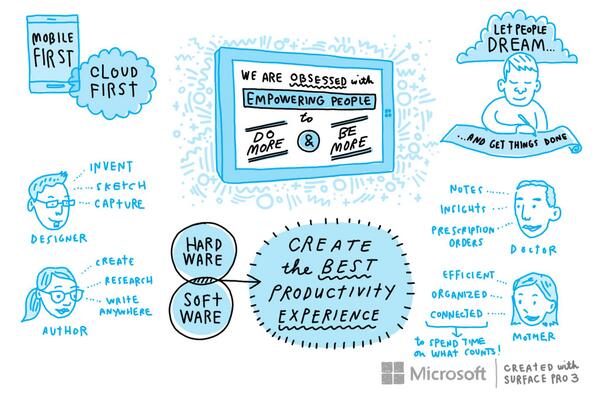 MOBILE
FIRST
CLOUD
FIRST
WE ARE OBSESSED with
EMPOWERING PEOPLE
to
DO
MORE
&
BE
MORE
LET PEOPLE
DREAM...
...AND GET THINGS DONE
INVENT
SKETCH
CAPTURE
DESIGNER
CREATE
RESEARCH
WRITE
ANYWHERE
AUTHOR
HARD
WARE
SOFT
WARE
CREATE
the BEST
PRODUCTIVITY
EXPERIENCE
NOTES
INSIGHTS
PRESCRIPTION
ORDERS
DOCTOR
EFFICIENT
ORGANIZED
CONNECTED
MOTHER
to SPEND TIME
ON WHAT COUNTS!
Microsoft
CREATED with
SURFACE PRO 3